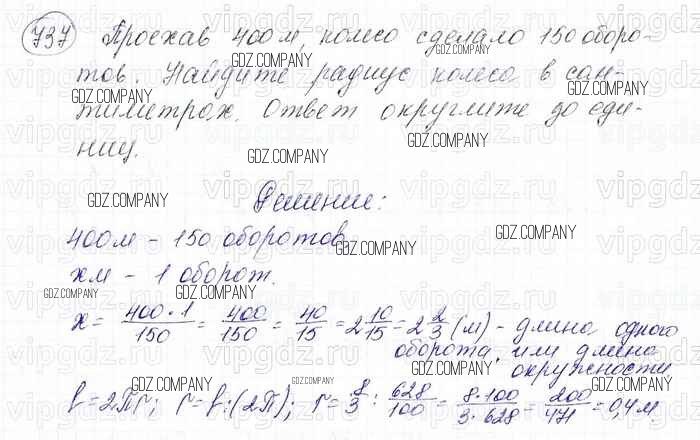 737 Проехав 400 м, колесо сделало 150 оборо-
тов. Найдите радиус колеса в сан-
тиметрах. Ответ округлите до еди-
ниц.
Решение:
400 м - 150 оборотов
x м - 1 оборот.
x = 400·1/150 = 400/150 = 40/15 = 2 10/15 = 2 2/3 (м) - длина одного
оборота, или длина
окружности
l = 2πr; r = l:(2π); r = 8/3 : 628/100 = 8·100/3·628 = 200/471 = 0,4 м.